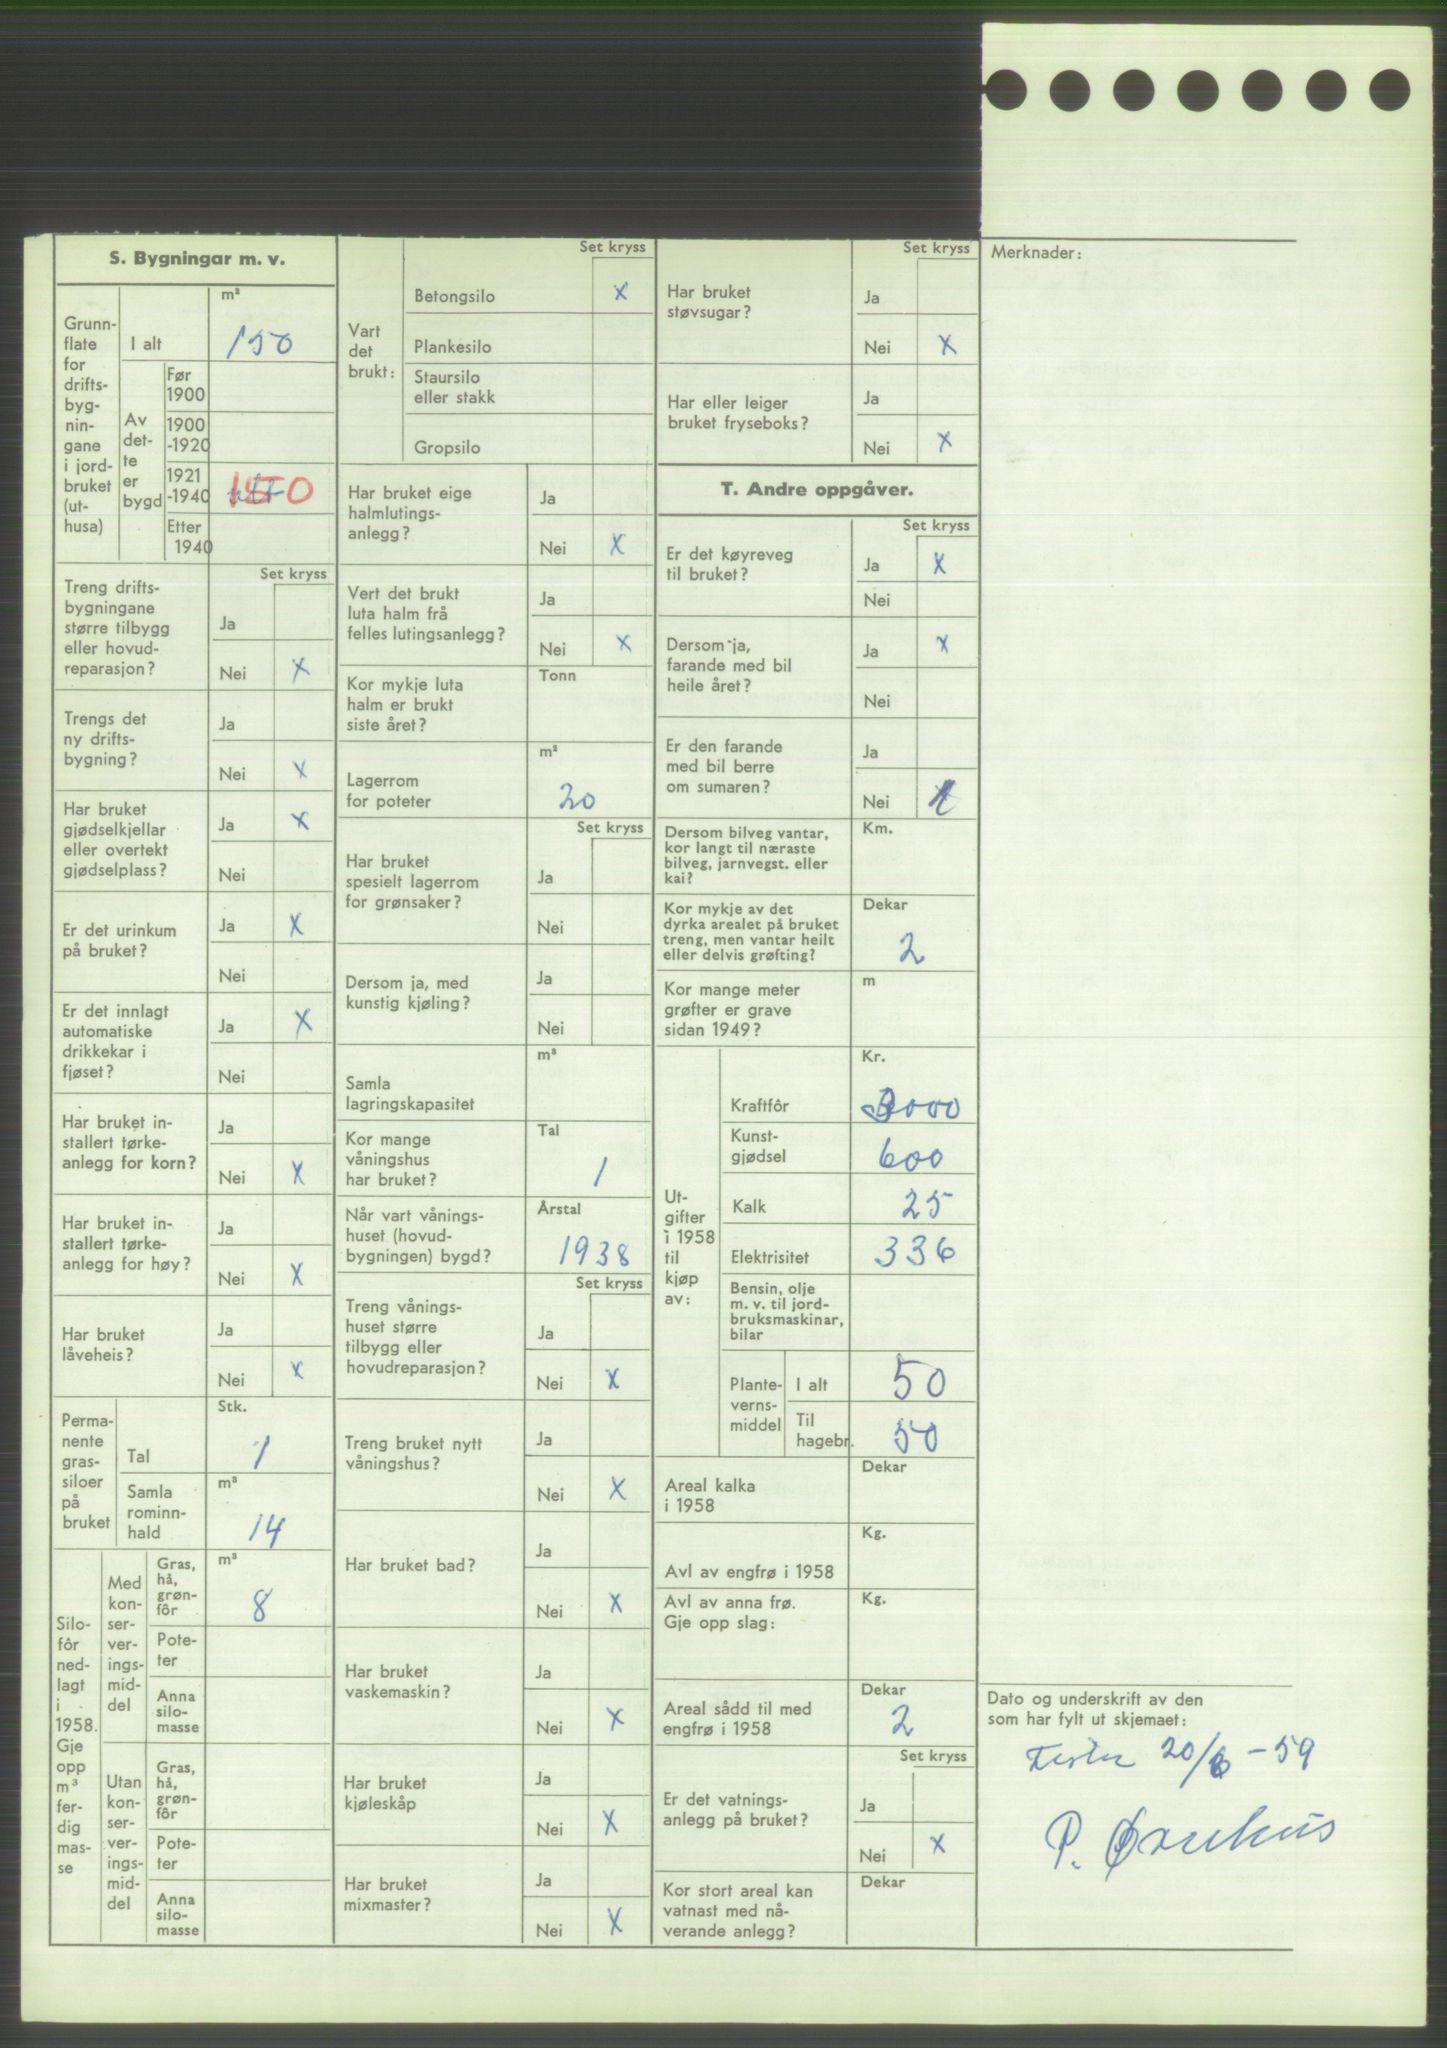 S. Bygningar m. v.
Grunn-
flate
for
drifts-
byg-
nin-
gane
i jord-
bruket
(ut-
husa)
m²
I alt 150
Av
det-
te
er
bygd
Før
1900
1900
-1920
1921
-1940 150
Etter
1940
Set kryss
Treng drifts-
bygningane
større tilbygg
eller hovud-
reparasjon?
Ja
Nei x
Trengs det
ny drifts-
bygning?
Ja
Nei x
Har bruket
gjødselkjellar
eller overtekt
gjødselplass?
Ja x
Nei
Er det urinkum
på bruket?
Ja x
Nei
Er det innlagt
automatiske
drikkekar i
fjøset?
Ja x
Nei
Har bruket in-
stallert tørke-
anlegg for korn?
Ja
Nei x
Har bruket in-
stallert tørke-
anlegg for høy?
Ja
Nei x
Har bruket
låveheis?
Ja
Nei x
Perma-
nente
gras-
siloer
på
bruket
Stk.
Tal 1
Samla
rominn-
hald
m³
14
Silo-
fôr
ned-
lagt
i
1958.
Gje
opp
m³
fer-
dig
mas-
se
Med
kon-
ser-
ver-
ings-
mid-
del
Gras,
hå,
grøn-
fôr
m³
8
Pote-
ter
Anna
silo-
masse
Utan
kon-
ser-
ver-
ings-
mid-
del
Gras,
hå,
grøn-
fôr
Pote-
ter
Anna
silo-
masse
Set kryss
Vart
det
brukt:
Betongsilo x
Plankesilo
Staursilo
eller stakk
Gropsilo
Har bruket eige
halmlutings-
anlegg?
Ja
Nei x
Vert det brukt
luta halm frå
felles lutingsanlegg?
Ja
Nei x
Kor mykje luta
halm er brukt
siste året?
Tonn
Lagerrom
for poteter
m³
20
Set kryss
Har bruket
spesielt lagerrom
for grønsaker?
Ja
Nei
Dersom ja, med
kunstig kjøling?
Ja
Nei
Samla
lagringskapasitet
m³
Kor mange
våningshus
har bruket?
Tal
1
Når vart vånings-
huset (hovud-
bygningen) bygd?
Årstal
1938
Set kryss
Treng vånings-
huset større
tilbygg eller
hovudreparasjon?
Ja
Nei x
Treng bruket nytt
våningshus?
Ja
Nei x
Har bruket bad?
Ja
Nei x
Har bruket
vaskemaskin?
Ja
Nei x
Har bruket
kjøleskåp
Ja
Nei x
Har bruket
mixmaster?
Ja
Nei x
Set kryss
Har bruket
støvsugar?
Ja
Nei x
Har eller leiger
bruket fryseboks?
Ja
Nei x
T. Andre oppgåver.
Set kryss
Er det køyreveg
til bruket?
Ja x
Nei
Dersom ja,
farande med bil
heile året?
Ja x
Nei
Er den farande
med bil berre
om sumaren?
Ja
Nei x
Dersom bilveg vantar,
kor langt til næraste
bilveg, jarnvegst. eller
kai?
Km.
Kor mykje av det
dyrka arealet på bruket
treng, men vantar heilt
eller delvis grøfting?
Dekar
2
Kor mange meter
grøfter er grave
sidan 1949?
m
Ut-
gifter
i 1958
til
kjøp
av:
Kr.
Kraftfôr 3000
Kunst-
gjødsel 600
Kalk 25
Elektrisitet 336
Bensin, olje
m. v. til jord-
bruksmaskinar,
bilar
Plante-
verns-
middel
I alt 50
Til
hagebr. 50
Areal kalka
i 1958
Dekar
Avl av engfrø i 1958
Kg.
Avl av anna frø.
Gje opp slag:
Kg.
Areal sådd til med
engfrø i 1958
Dekar
2
Set kryss
Er det vatnings-
anlegg på bruket?
Ja
Nei x
Kor stort areal kan
vatnast med nå-
verande anlegg?
Dekar
Merknader:
Dato og underskrift av den
som har fylt ut skjemaet:
20/6 - 59
P.